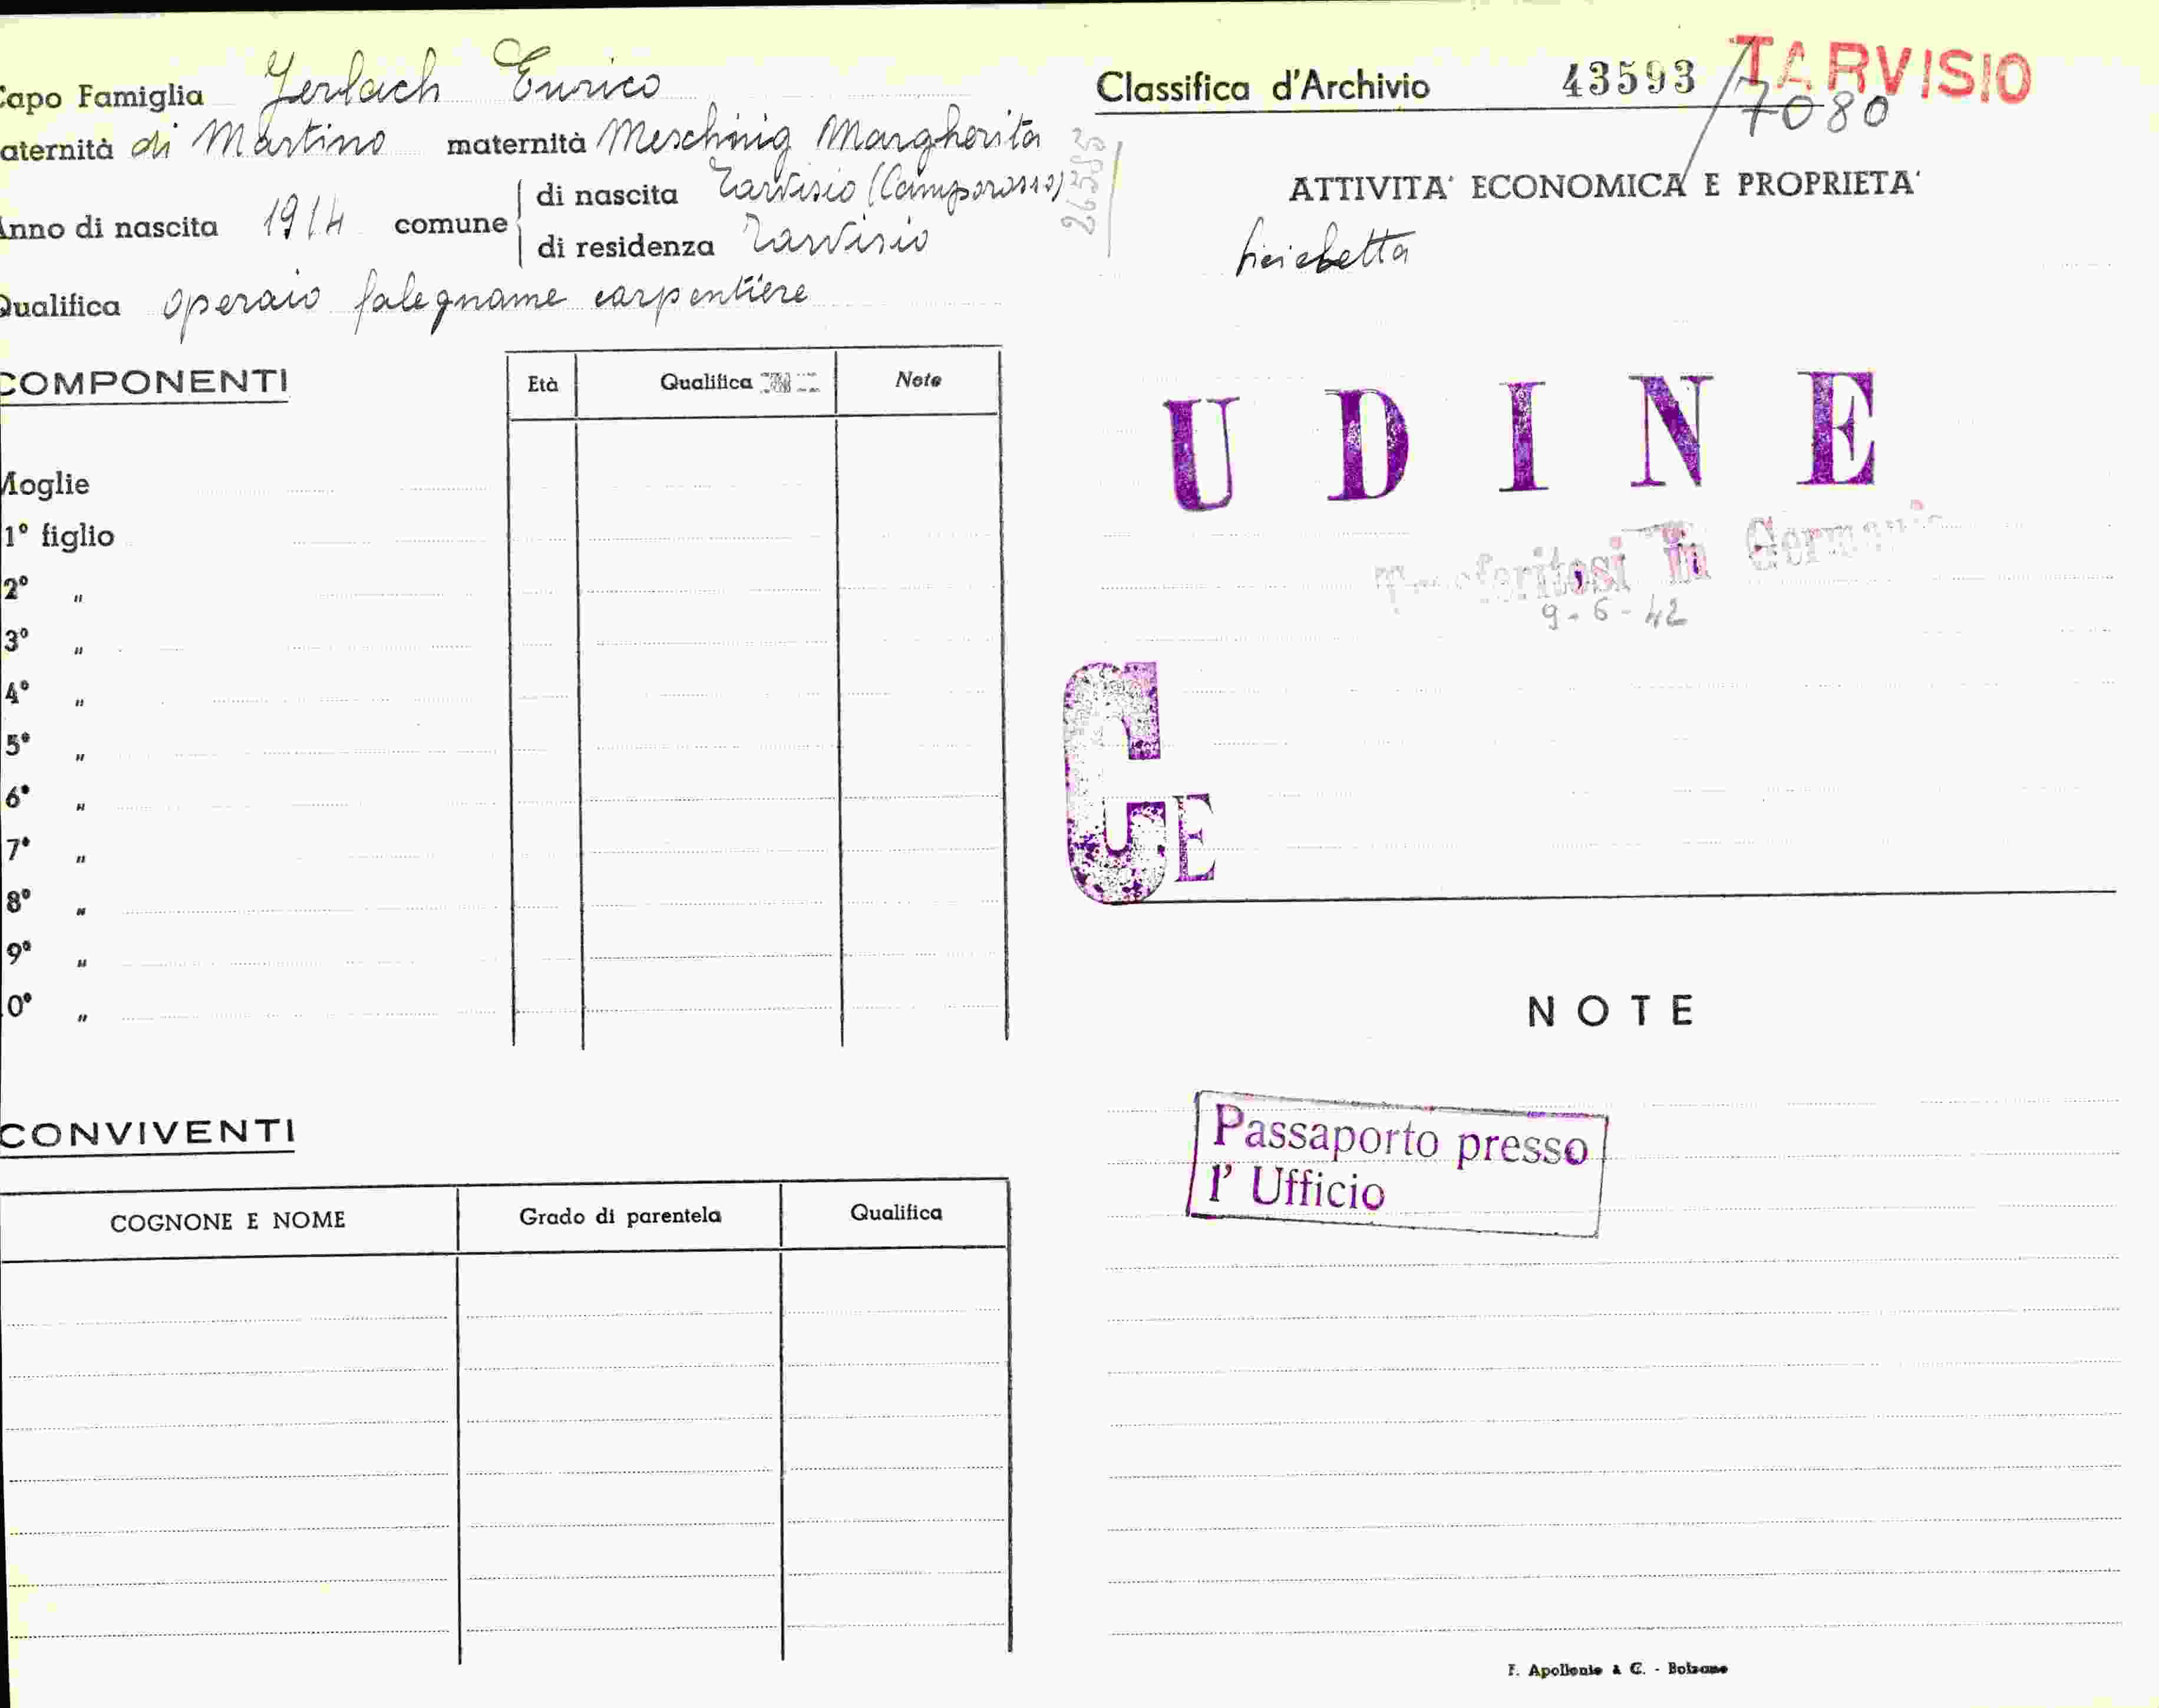 Capo Famiglia Jerlach Enrico
aternità di Martino maternità Meschnig Margherita
Anno di nascita 1914 comune di nascita Tarvisio (Camporosso)
di residenza Tarvisio
Qualifica operaio falegname carpentiere
COMPONENTI
Età Qualifica Note
Moglie
1º figlio
2º "
3º "
4º "
5º "
6º "
7º "
8º "
9º "
0º "
CONVIVENTI
COGNONE E NOME Grado di parentela Qualifica
Classifica d'Archivio 43593 / TARVISIO
7080
ATTIVITA' ECONOMICA E PROPRIETA'
UDINE
Trasferitosi in Germania
9-6-42
G
E
NOTE
Passaporto presso
l' Ufficio
F. Apollonio & C. - Bolzano